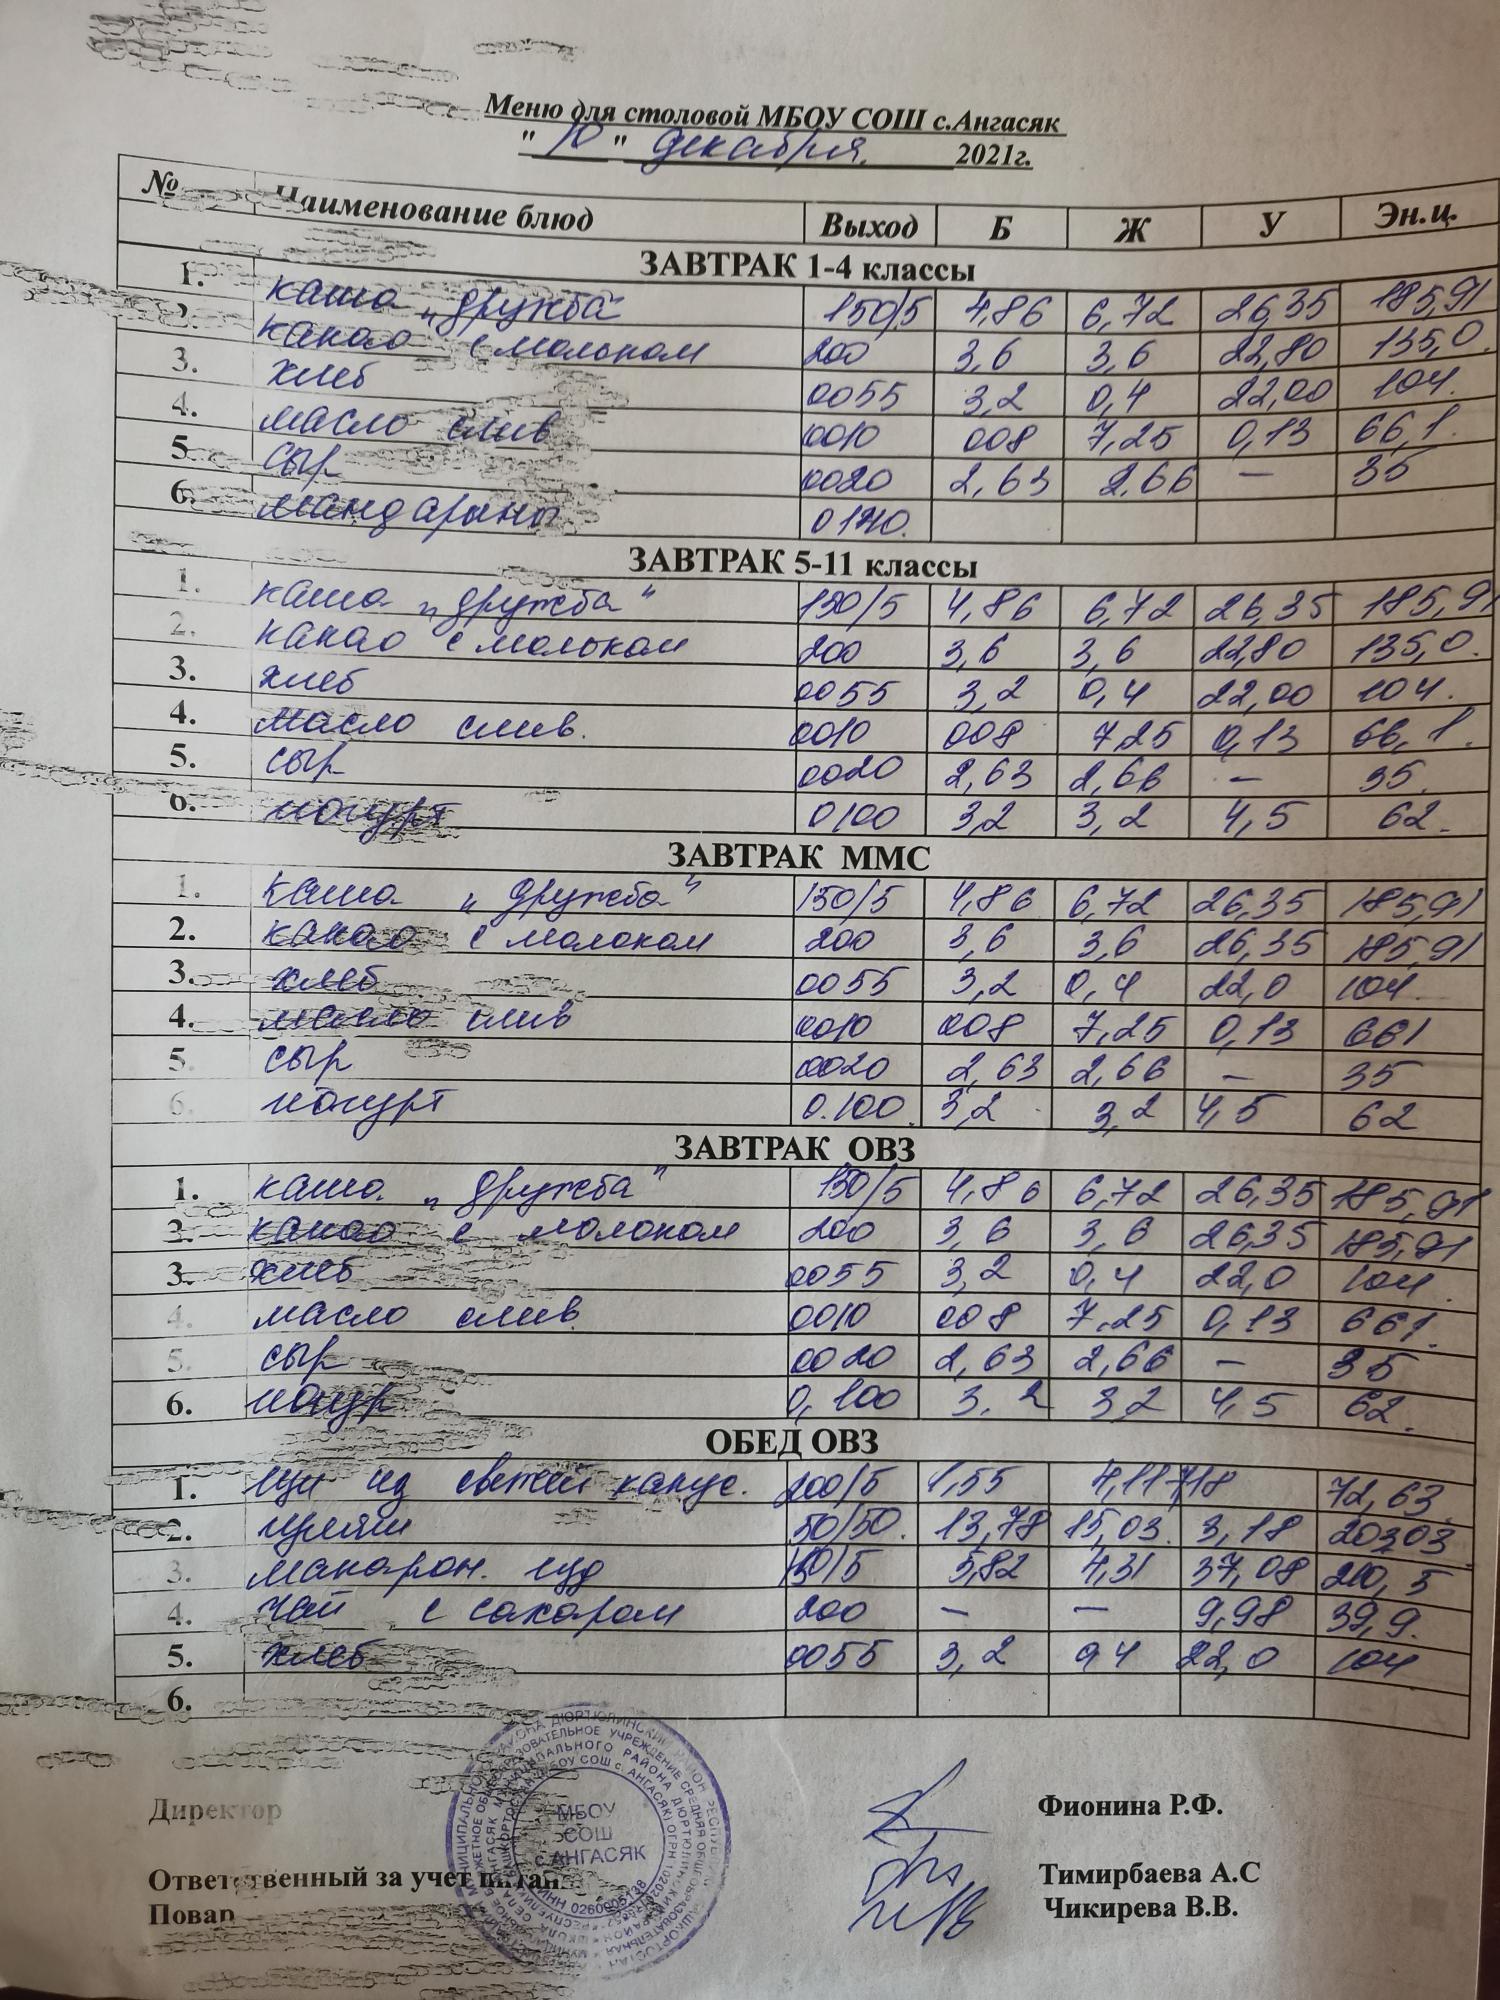 Меню для столовой МБОУ СОШ с.Ангасяк
" 10 " декабря. 2021г.
№ Наименование блюд Выход Б Ж У Эн.ц.
ЗАВТРАК 1-4 классы
1. каша "дружба" 150/5 4,86 6,72 26,35 185,91
2. какао с молоком 200 3,6 3,6 22,80 135,0.
3. хлеб 0055 3,2 0,4 22,00 104.
4. масло слив 0010 008 7,25 0,13 66,1.
5. сыр 0020 2,63 2,66 — 35
6. мандарины
ЗАВТРАК 5-11 классы
1. каша "дружба" 150/5 4,86 6,72 26,35 185,91
2. какао с молоком 200 3,6 3,6 22,80 135,0.
3. хлеб 0055 3,2 0,4 22,00 104.
4. масло слив. 0010 008 7,25 0,13 66,1.
5. сыр 0020 2,63 2,66 — 35.
6. йогурт 0100 3,2 3,2 4,5 62.
ЗАВТРАК ММС
1. каша "дружба" 150/5 4,86 6,72 26,35 185,91
2. какао с молоком 200 3,6 3,6 26,35 185,91
3. хлеб 0055 3,2 0,4 22,0 104.
4. масло слив 0010 008 7,25 0,13 661
5. сыр 0020 2,63 2,66 — 35
6. йогурт 0.100. 3,2 3,2 4,5 62
ЗАВТРАК ОВЗ
1. каша. "дружба" 150/5 4,86 6,72 26,35 185,91
2. какао с молоком 200 3,6 3,6 26,35 185,91
3. хлеб 0055 3,2 0,4 22,0 104.
4. масло слив. 0010 008 7,25 0,13 661.
5. сыр 0020 2,63 2,66 — 35
6. йогур 0,100 3,2 3,2 4,5 62.
ОБЕД ОВЗ
1. щи из свежей капус. 200/5 1,55 4,11 7,18 72,63
2. гуляш 50/50. 13,78 15,03. 3,18 20303
3. макарон. изд 150/5 5,82 4,31 37,08 210,5
4. чай с сахаром 200 — — 9,98 39,9.
5. хлеб 0055 3,2 04 22,0 104
6.
Директор Фионина Р.Ф.
Ответственный за учет питан Тимирбаева А.С
Повар Чикирева В.В.
МБОУ
СОШ
с.АНГАСЯК